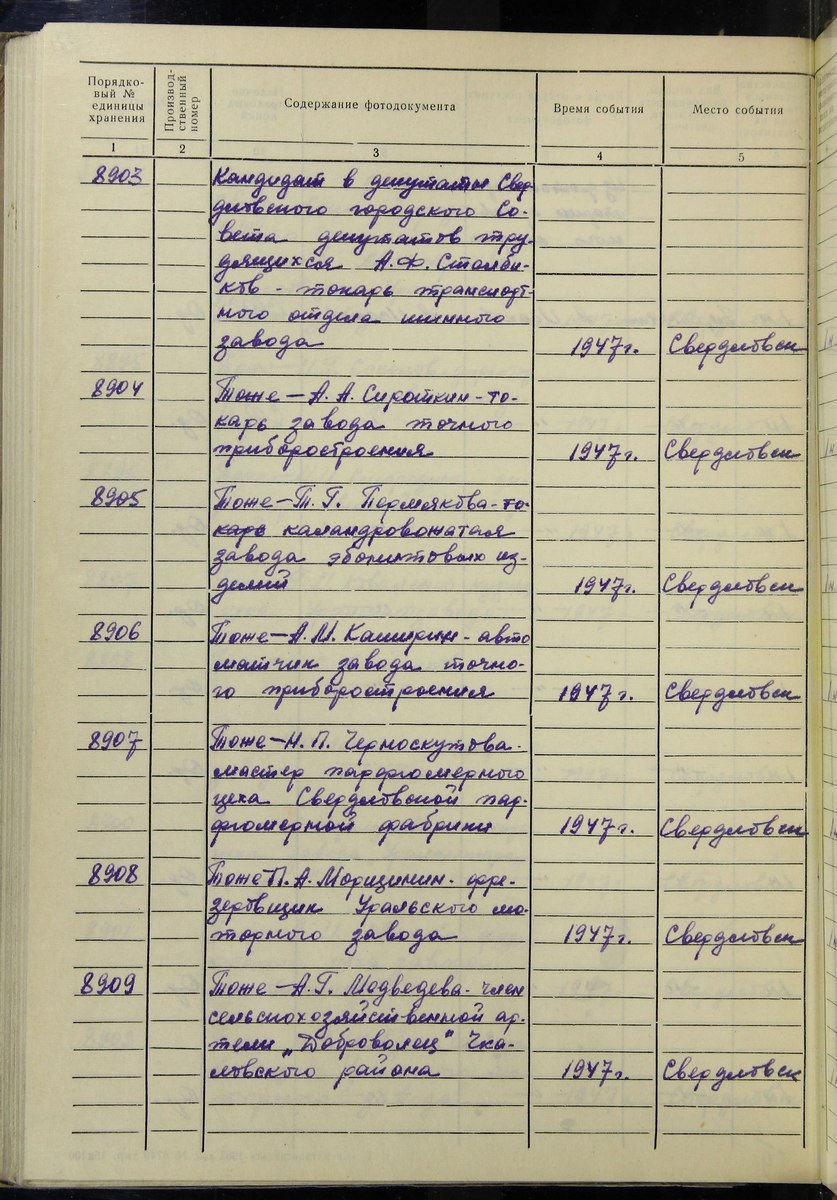 Порядко-
вый №
единицы
хранения
Производ-
ственный
номер
Содержание фотодокумента
Время события
Место события
1
2
3
4
5
8903
Кандидат в депутаты Свер-
дловского городского Со-
вета депутатов тру-
дящихся А.Ф. Столби-
ков - токарь транспорт-
ного отдела шинного
завода 1947г. Свердловск
8904 Тоже — А. А. Сироткин - то-
карь завода точного
приборостроения 1947г. Свердловск
8905 Тоже — Т. Г. Пермякова - то-
карь каландровожатая
завода эбонитовых из-
делий 1947г. Свердловск
8906 Тоже — А. М. Каширин - авто
матчик завода точно-
го приборостроения 1947г. Свердловск
8907 Тоже — Н. П. Черноскутова -
мастер парфюмерного
цеха Свердловской пар-
фюмерной фабрики 1947г. Свердловск
8908 Тоже П. А. Морщинин - фре-
зеровщик Уральского мо-
торного завода 1947г. Свердловск
8909 Тоже — А. Г. Медведева - член
сельскохозяйственной ар-
тели „Доброволец" Чка-
ловского района 1947г. Свердловск